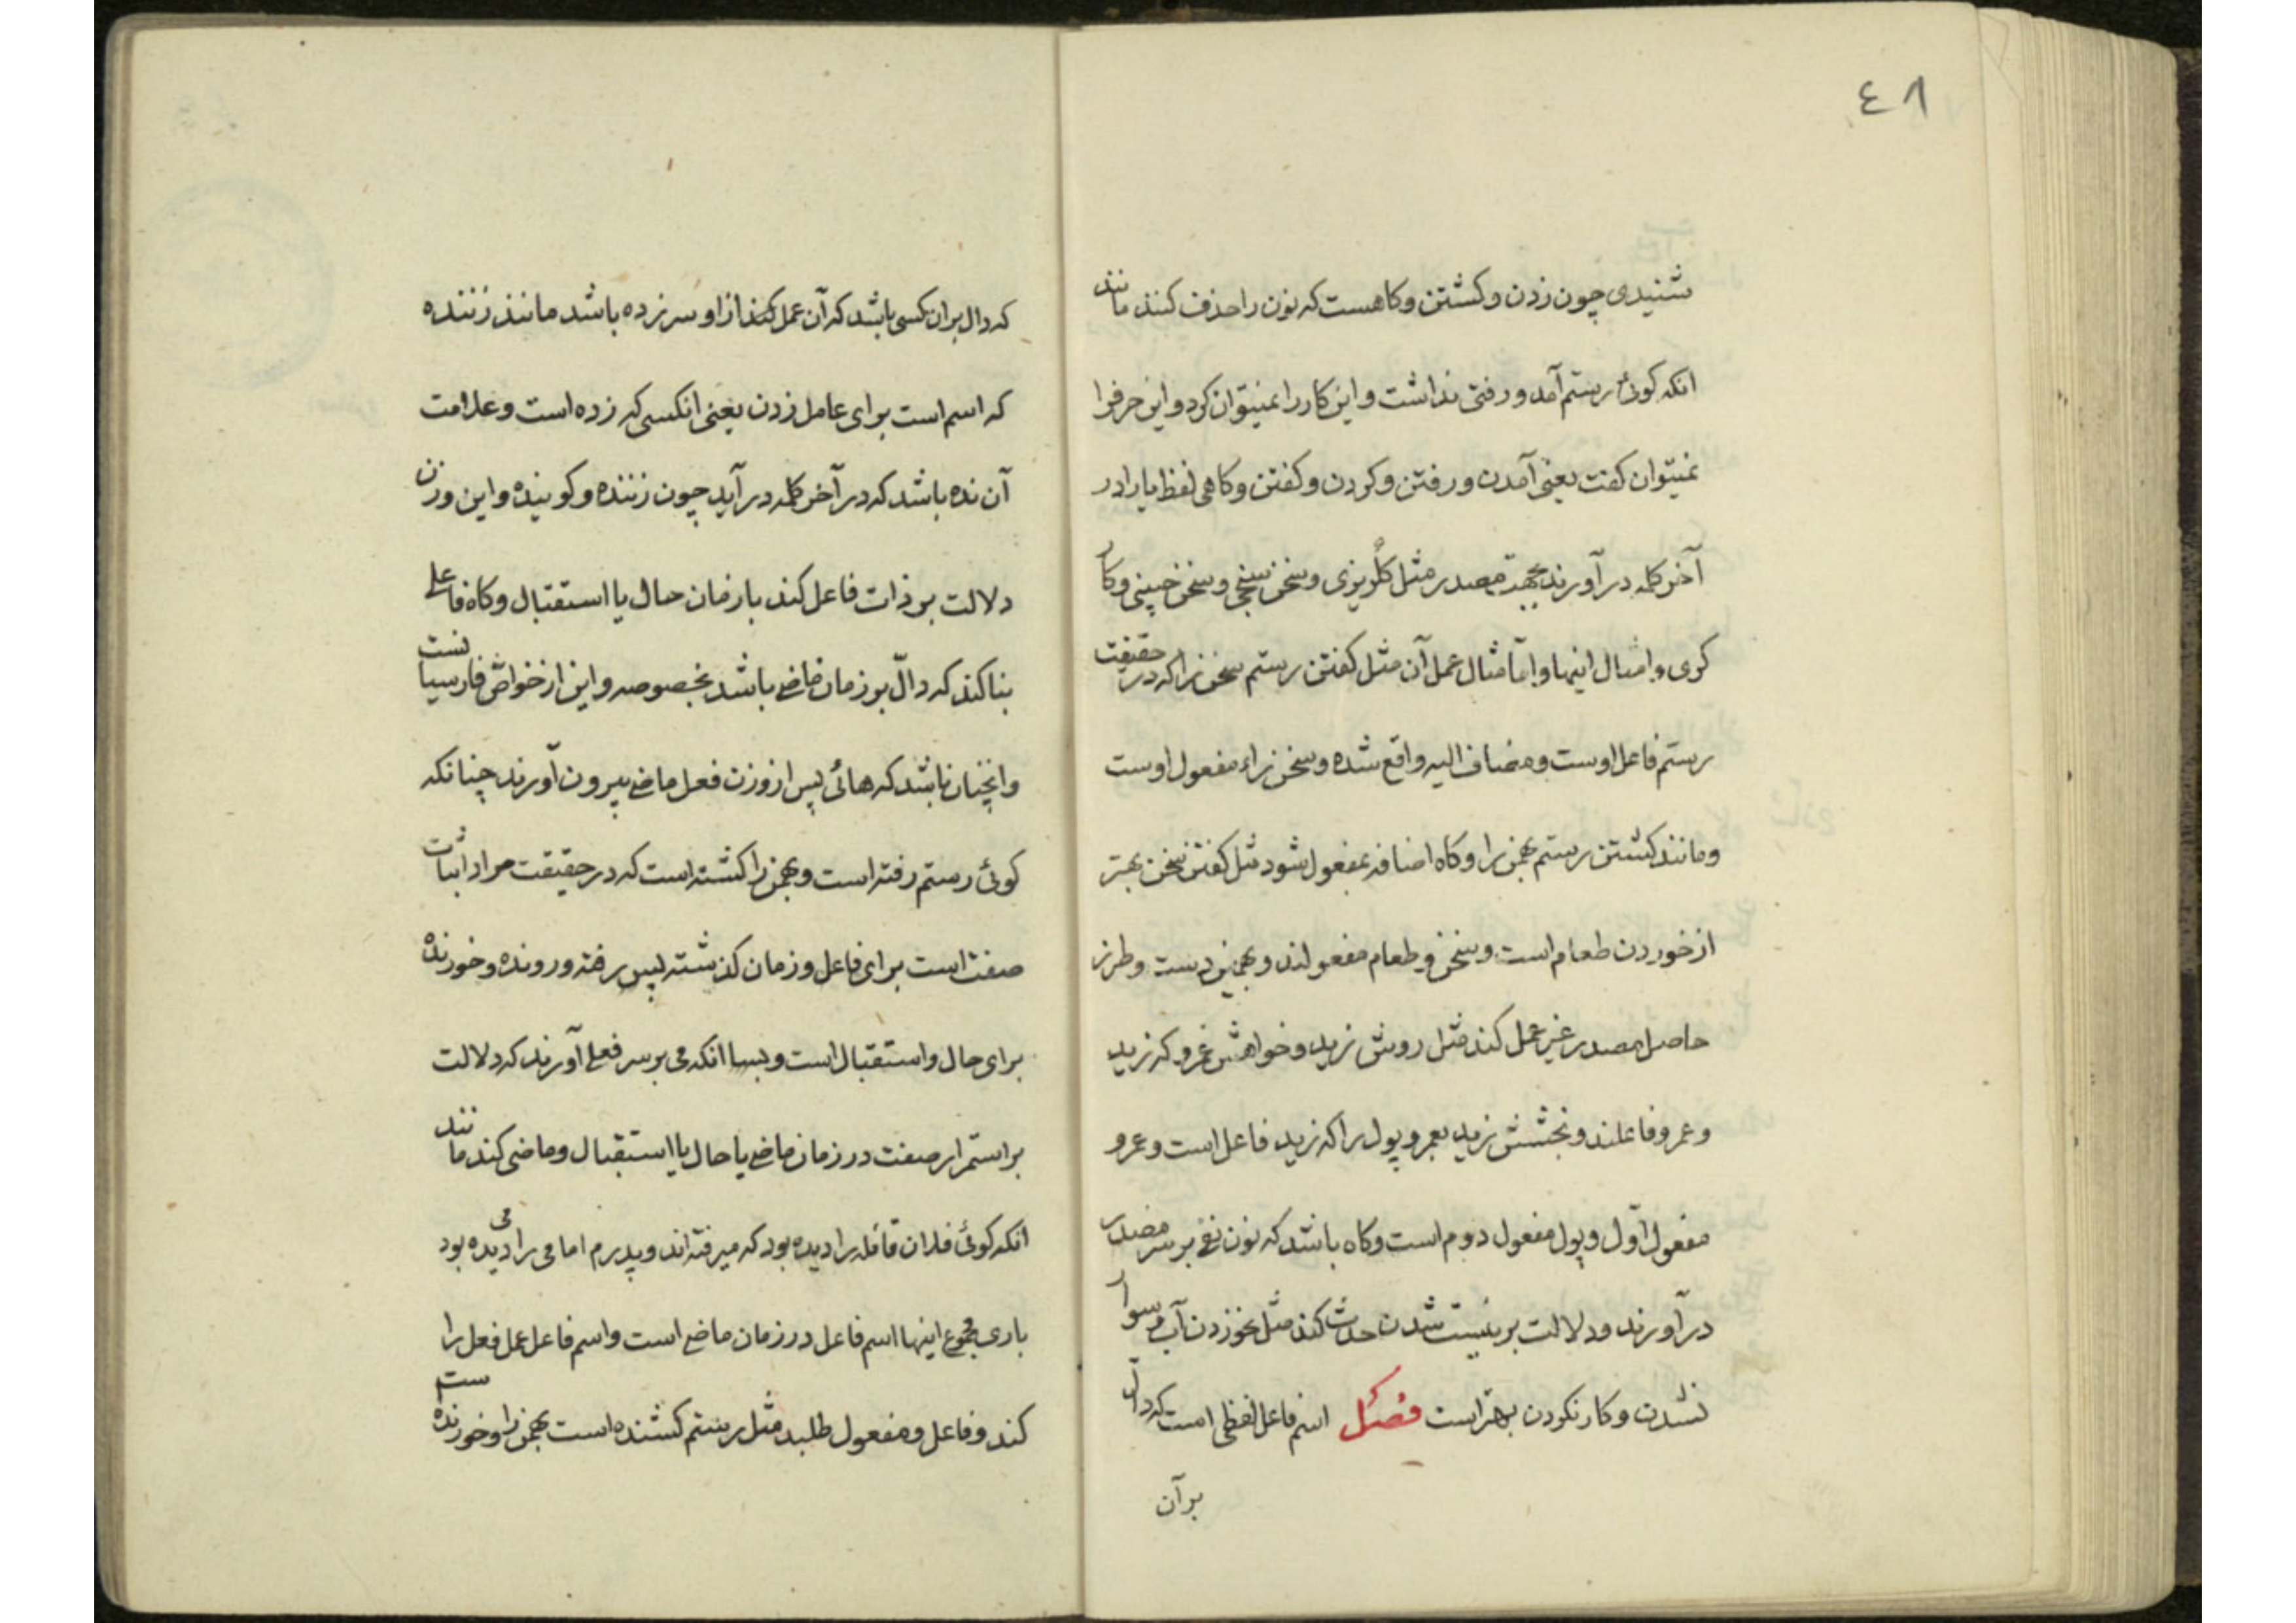 ٤٨
شنیدی چون زدن و کشتن و کاهست که نون را حذف کنند مانند
انکه کوئی رستم آمد و رفتی نداشت و این کار را نمیتوان کرد و این حرفرا
نمیتوان کفت یعنی آمدن و رفتن و کردن و کفتن و کاهی لفظ یا را در
آخر کلمه در آورند بجهة مصدر مثل کلریزی و سخن سنجی و سخن چینی و کار
کری و امثال اینها و امّا مثال عمل آن مثل کفتن رستم سخن را که در حقیقت
رستم فاعل اوست و مضاف الیه واقع شده و سخن را مفعول اوست
و مانند کشتن رستم بهمن را و کاه اضافه بمفعول شود مثل کفتن سخن بهتر
از خوردن طعام است و سخن و طعام مفعولند و بهمین دست و طرز
حاصل مصدر غیر عمل کند مثل روش زید و خواهش عمرو که زید
و عمرو فاعلند و بخشش زید بعمرو پول را که زید فاعل است و عمرو
مفعول اوّل و پول مفعول دوم است و کاه باشد که نون نفی بر سر مصدر
در آورند و دلالت بر نیست شدن حدث کند مثل نخوردن آب و سوار
نشدن و کار نکردن بهتر است فصل اسم فاعل لفظی است که دالّ
بر آن
که دال بران کسی باشد که آن عمل کند از او سر زده باشد مانند زننده
که اسم است برای عامل زدن یعنی انکسی که زده است و علامت
آن نده باشد که در آخر کلمه در آید چون زننده و کوینده و این وزن
دلالت بر ذات فاعل کند با زمان حال یا استقبال و کاه فاعلی
بنا کند که دالّ بر زمان ماضی باشد بخصوصه و این از خواصّ فارسیانست
و انچنان باشد که هائی پس از وزن فعل ماضی بیرون آورند چنانکه
کوئی رستم رفته است و بهمن را کشته است که در حقیقت مراد اثبات
صفت است برای فاعل و زمان کذشته پس رفته و رونده و خورنده
برای حال و استقبال است و بسا انکه می بر سر فعلی آورند که دلالت
بر استمرار صفت در زمان ماضی یا حال یا استقبال و ماضی کند مانند
انکه کوئی فلان قافله را دیده بود که میرفته اند و پدرم اما می را می دیده بود
باری مجموع اینها اسم فاعل در زمان ماضی است و اسم فاعل عمل فعل را
کند و فاعل و مفعول طلبد مثل رستم کشنده است بهمن را و خورنده است